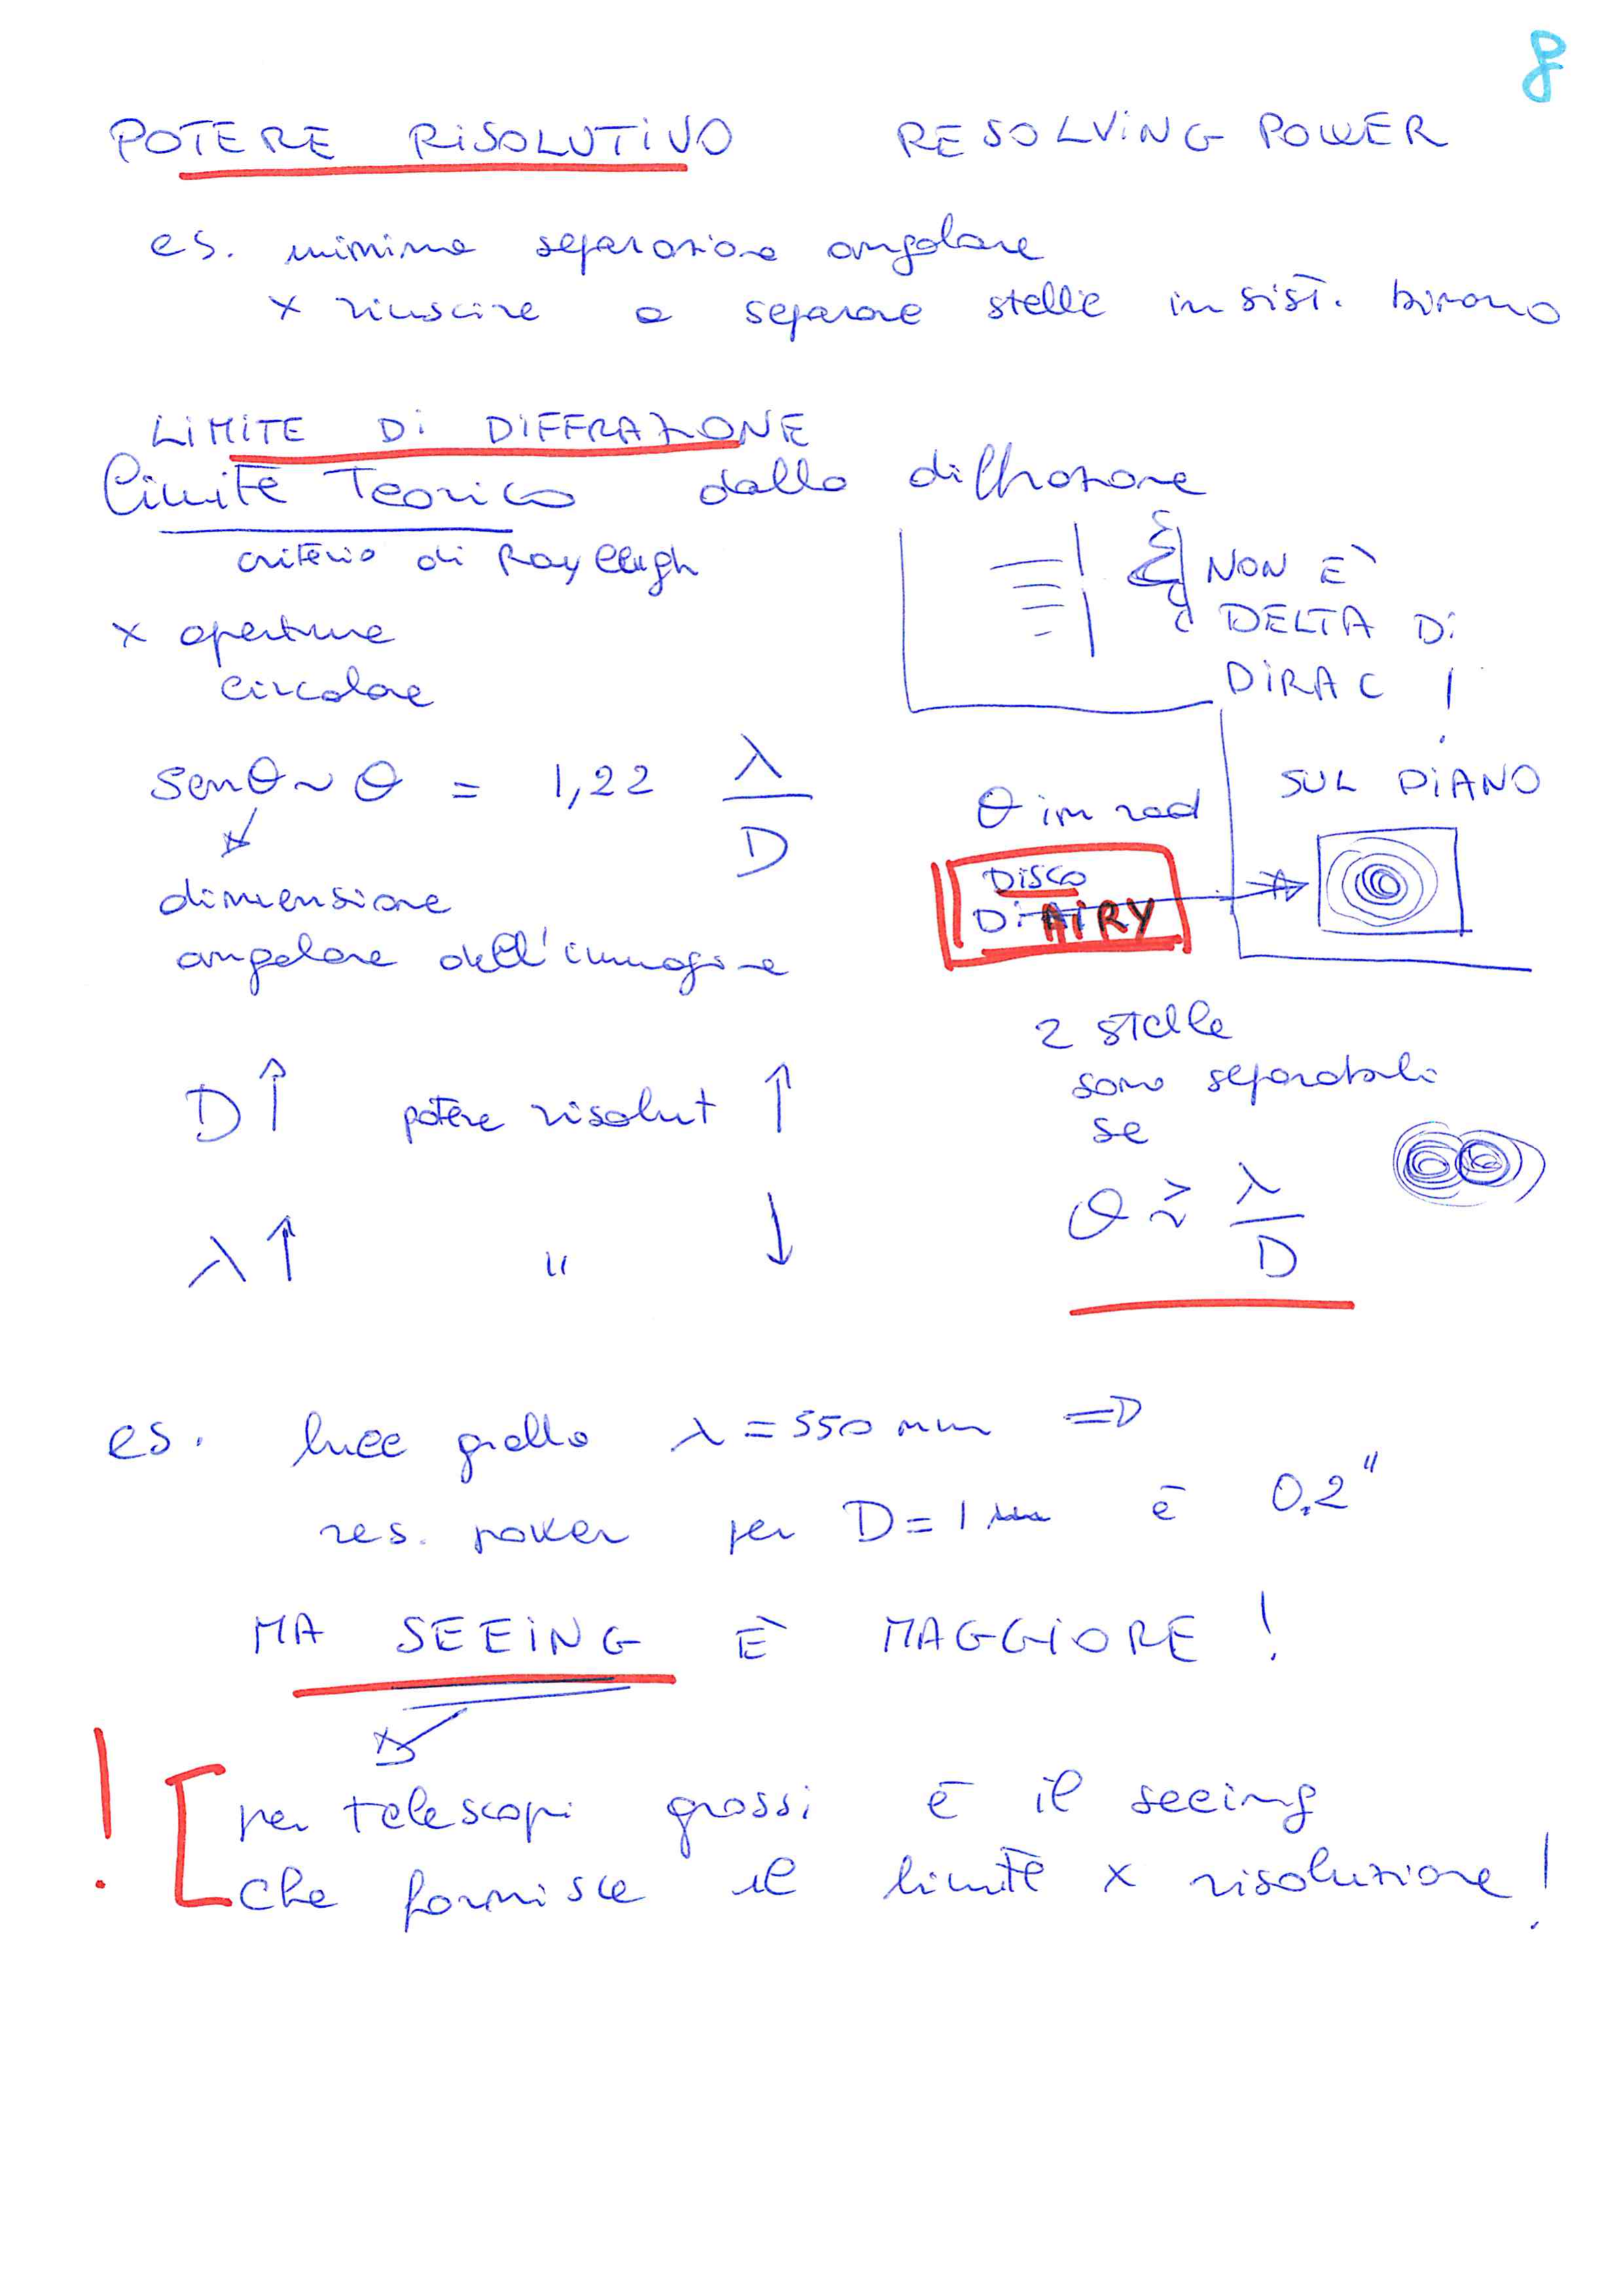 8
POTERE RISOLUTIVO RESOLVING POWER
es. minima separazione angolare
x riuscire a separare stelle in sist. binario
LIMITE DI DIFFRAZIONE
Limite Teorico dalla diffrazione
criterio di Rayleigh
x aperture
circolare
NON È
DELTA DI
DIRAC !
senθ ~ θ = 1,22 λ/D
θ in rad
SUL PIANO
DISCO
DI AIRY
dimensione
angolare dell'immagine
2 stelle
sono separabili
se
θ ≳ λ/D
D ↑ potere risolut ↑
λ ↑ " ↓
es. luce gialla λ = 550 nm ⇒
res. power per D = 1 m è 0.2"
MA SEEING È MAGGIORE !
! per telescopi grossi è il seeing
che fornisce il limite x risoluzione !